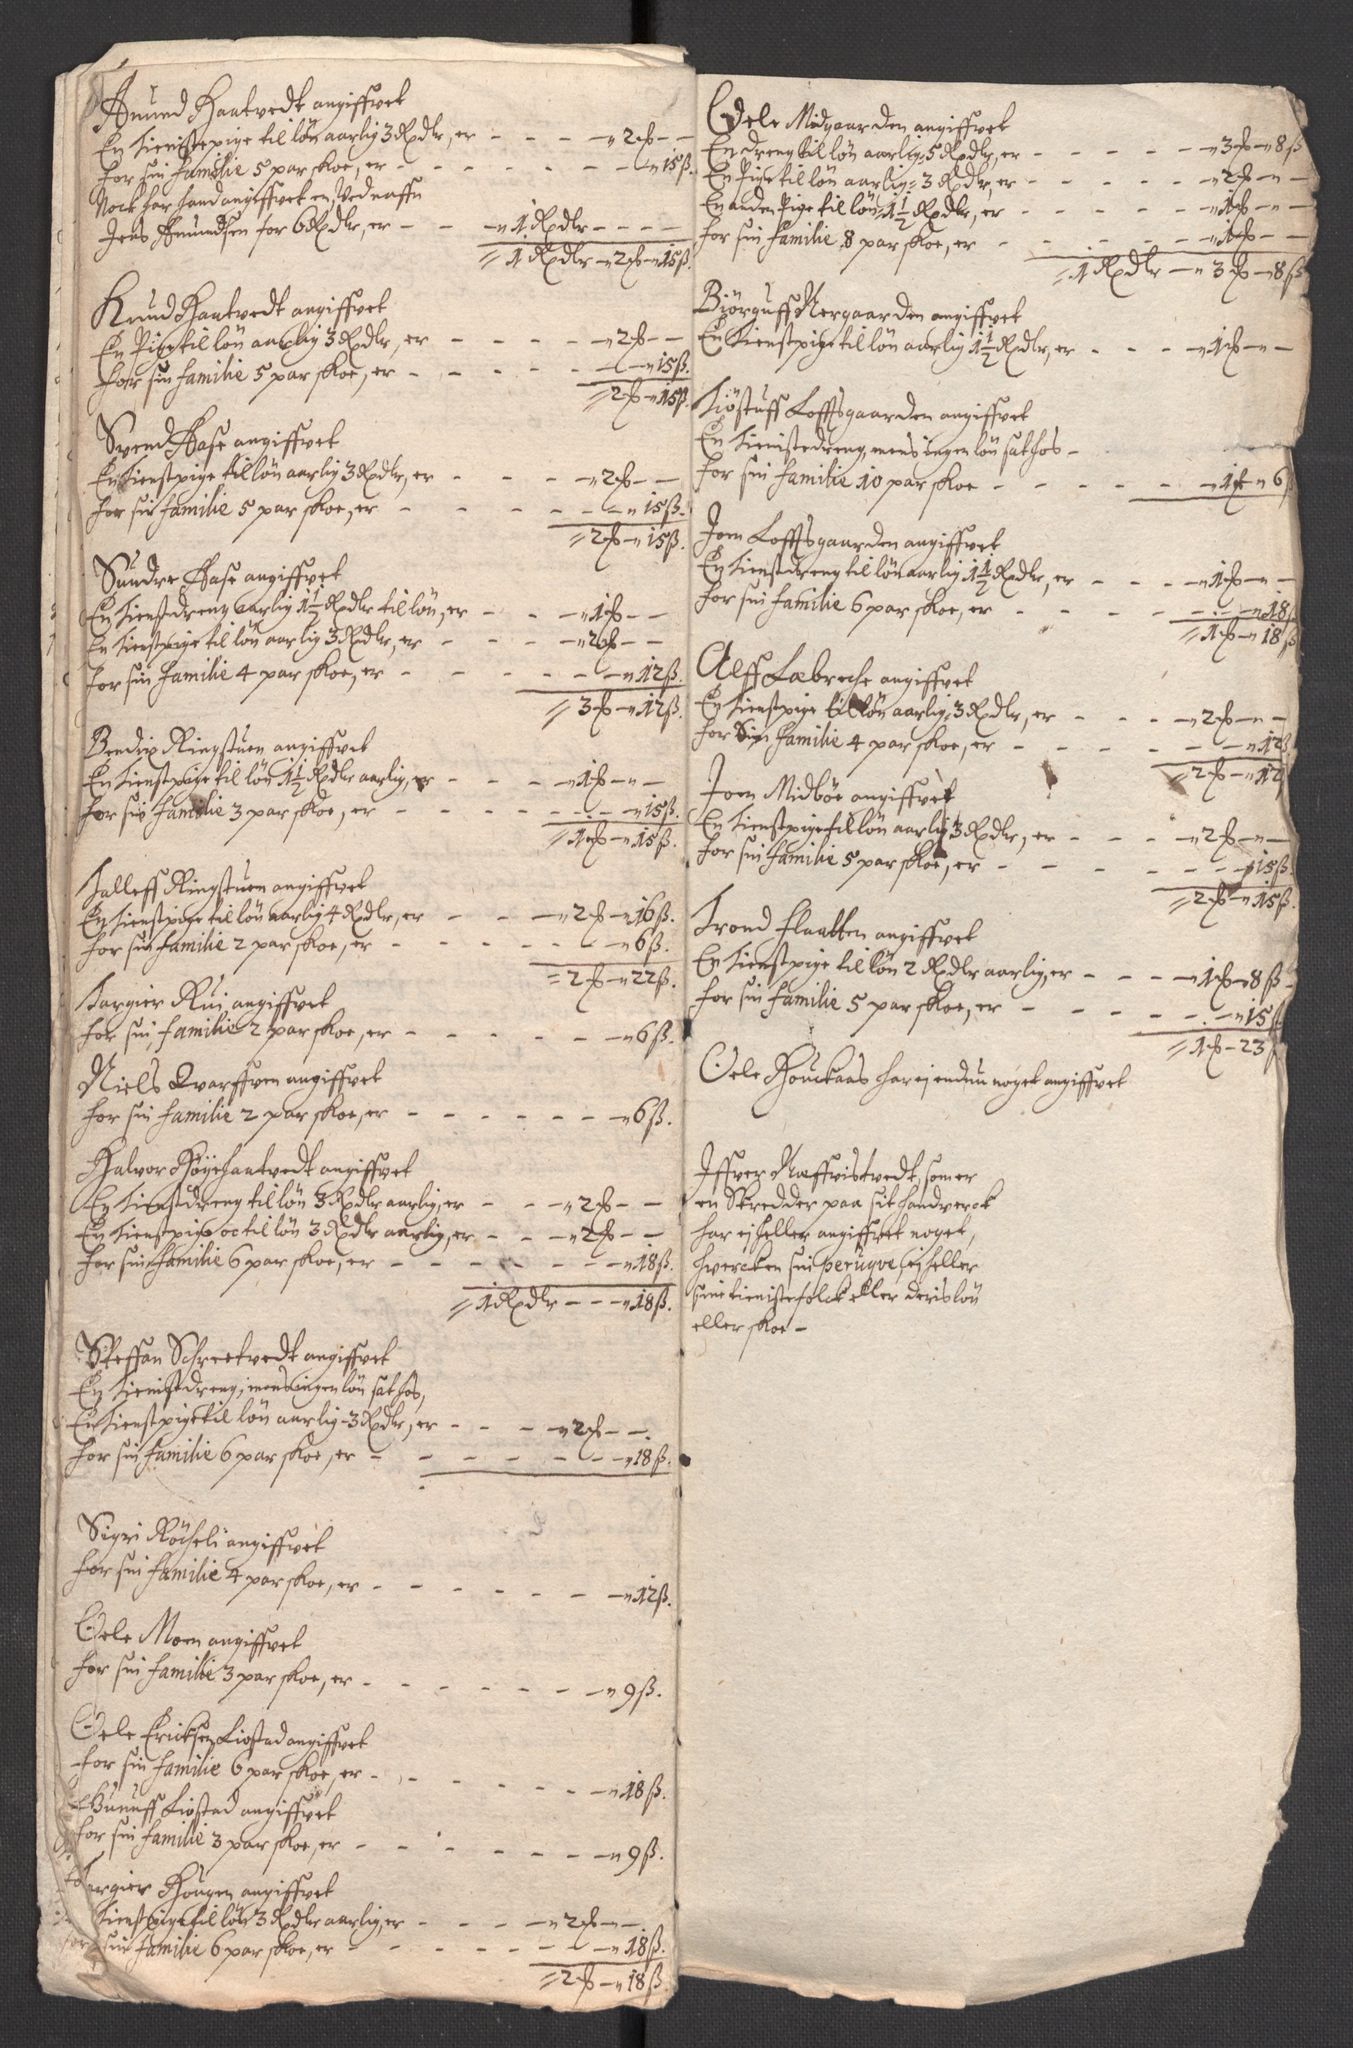 Amund Haatvedt angiffvet
En tienistepige til løn aarlig 3 Rxdlr, er - - - - "2 ȹ - -
for sin familie 5 par skoe, er - - - - - - "15ß.
Nock har hand angiffvet en Ved naffn
Jens Amundsen for 6 Rxdlr, er - - "1 Rxdlr - - - -
= 1 Rxdlr - 2 ȹ - "15ß.
Knud Haatvedt angiffvet
En Pige til løn aarlig 3 Rxdlr, er - - - - "2 ȹ - -
for sin familie 5 par skoe, er - - - - - - "15ß.
= 2 ȹ - "15ß.
Svend Aase angiffvet
En tienstpige til løn aarlig 3 Rxdlr, er - - - - "2 ȹ - -
for sin familie 5 par skoe, er - - - - - - "15ß.
= 2 ȹ - "15ß.
Sundre Aase angiffvet
En tienstdreng aarlig 1½ Rxdlr til løn, er - - - "1 ȹ - -
En tienstpige til løn aarlig 3 Rxdlr, er - - - - "2 ȹ - -
for sin familie 4 par skoe, er - - - - - - "12ß.
= 3 ȹ - "12ß.
Bendix Ringstuen angiffvet
En tienstpige til løn 1½ Rxdlr aarlig, er - - - "1 ȹ - " -
for sin familie 3 par skoe, er - - - - - - "15ß.
= 1 ȹ - "15ß.
Talleff Ringstuen angiffvet
En tienstpige til løn aarlig 4 Rxdlr, er - - - "2 ȹ - "16ß.
for sin familie 2 par skoe, er - - - - - - "6ß.
= 2 ȹ - "22ß.
Targier Rui angiffvet
for sin familie 2 par skoe, er - - - - - - "6ß.
Niels Qvarffven angiffvet
for sin familie 2 par skoe, er - - - - - - "6ß.
Halvor Høyehaatvedt angiffvet
En tienstdreng til løn 3 Rxdlr aarlig, er - - - "2 ȹ - -
En tienstpige oc til løn 3 Rxdlr aarlig, er - - - "2 ȹ - -
for sin familie 6 par skoe, er - - - - - - "18ß.
= 1 Rxdlr - - - "18ß.
Steffan Schreetvedt angiffvet
En tienistdreng, mens ingen løn sat hos,
En tienstpige til løn aarlig - 3 Rxdlr, er - - - "2 ȹ - -.
for sin familie 6 par skoe, er - - - - - - "18ß.
Sigri Røiseli angiffvet
for sin familie 4 par skoe, er - - - - - - "12ß.
Oele Moen angiffvet
for sin familie 3 par skoe, er - - - - - - "9ß.
Oele Ericksen Liostad angiffvet
for sin familie 6 par skoe, er - - - - - - "18ß.
Gunuff Liostad angiffvet
for sin familie 3 par skoe, er - - - - - - "9ß.
Targier Hougen angiffvet
tienstpige til løn 3 Rxdlr aarlig, er - - - - "2 ȹ - " -
for sin familie 6 par skoe, er - - - - - - "18ß.
= 2 ȹ - "18ß
Oele Midgaarden angiffvet
En dreng til løn aarlig 5 Rxdlr, er - - - - - "3 ȹ - "8ß
En Pige til løn aarlig 3 Rxdlr, er - - - - - "2 ȹ - " -
En anden Pige til løn 1½ Rxdlr, er - - - - - "1 ȹ - " -
for sin familie 8 par skoe, er - - - - - - "1 ȹ - -
= 1 Rxdlr - "3 ȹ - "8ß
Biørguff Nergaarden angiffvet
En tienstpige til løn aarlig 1½ Rxdlr, er - - - - "1 ȹ - " -
Kiøstuff Lofftsgaarden angiffvet
En tienistedreng, mens ingen løn sat hos -
for sin familie 10 par skoe - - - - - "1 ȹ "6ß
Joen Lofftsgaarden angiffvet
En tienstdreng til løn aarlig 1½ Rxdlr, er - - - "1 ȹ - " -
for sin familie 6 par skoe, er - - - - - - "18ß
= 1 ȹ - "18ß
Alff Læbreche angiffvet
En tienstpige til løn aarlig 3 Rxdlr, er - - - "2 ȹ - " -
for Sin familie 4 par skoe, er - - - - - - "12ß
= 2 ȹ - "12
Joen Midbøe angiffvet
En tienstpige til løn aarlig 3 Rxdlr, er - - - - "2 ȹ - " -
for sin familie 5 par skoe, er - - - - - - "15ß.
= 2 ȹ - "15ß.
Trond Flaatten angiffvet
En tienstpige til løn 2 Rxdlr aarlig, er - - - "1 ȹ - "8ß -
for sin familie 5 par skoe, er - - - - - - "15ß
= 1 ȹ - 23ß
Oele Houckaas har ej endnu noget angiffvet
Iffver Næffvistvedt, som er
en Skredder paa sit handverck
har ej heller angiffvet noget,
hvercken sin perüqve, ej heller
sine tienistefolck eller deris løn
eller skoe -